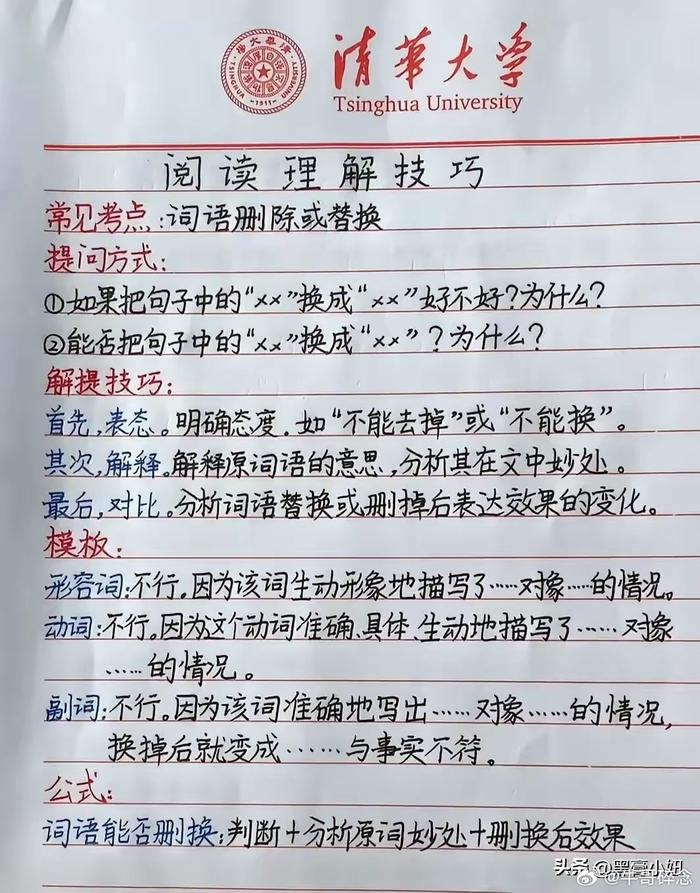 清华大学
Tsinghua University
TSINGHUA UNIVERSITY
1911
阅读理解技巧
常见考点:词语删除或替换
提问方式:
①如果把句子中的“××”换成“××”好不好?为什么?
②能否把句子中的“××”换成“××”?为什么?
解提技巧:
首先,表态。明确态度.如“不能去掉”或“不能换”。
其次,解释.解释原词语的意思,分析其在文中妙处。
最后,对比。分析词语替换或删掉后表达效果的变化。
模板:
形容词:不行。因为该词生动形象地描写了……对象……的情况。
动词:不行。因为这个动词准确、具体、生动地描写了……对象
……的情况。
副词:不行。因为该词准确地写出……对象……的情况,
换掉后就变成……与事实不符。
公式:
词语能否删换:判断+分析原词妙处+删换后效果
头条@墨豪小妞
@牛哥碎念